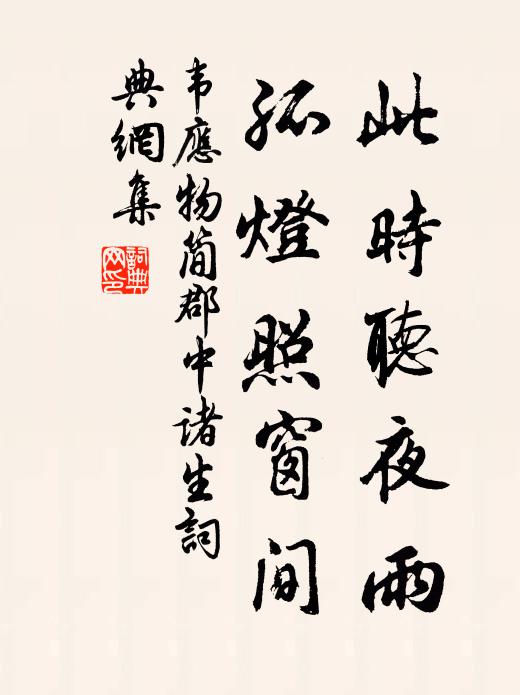 此時聽夜雨
孤燈照窗間
韦應物簡郡中诸生詞
典網集
詞典
网印